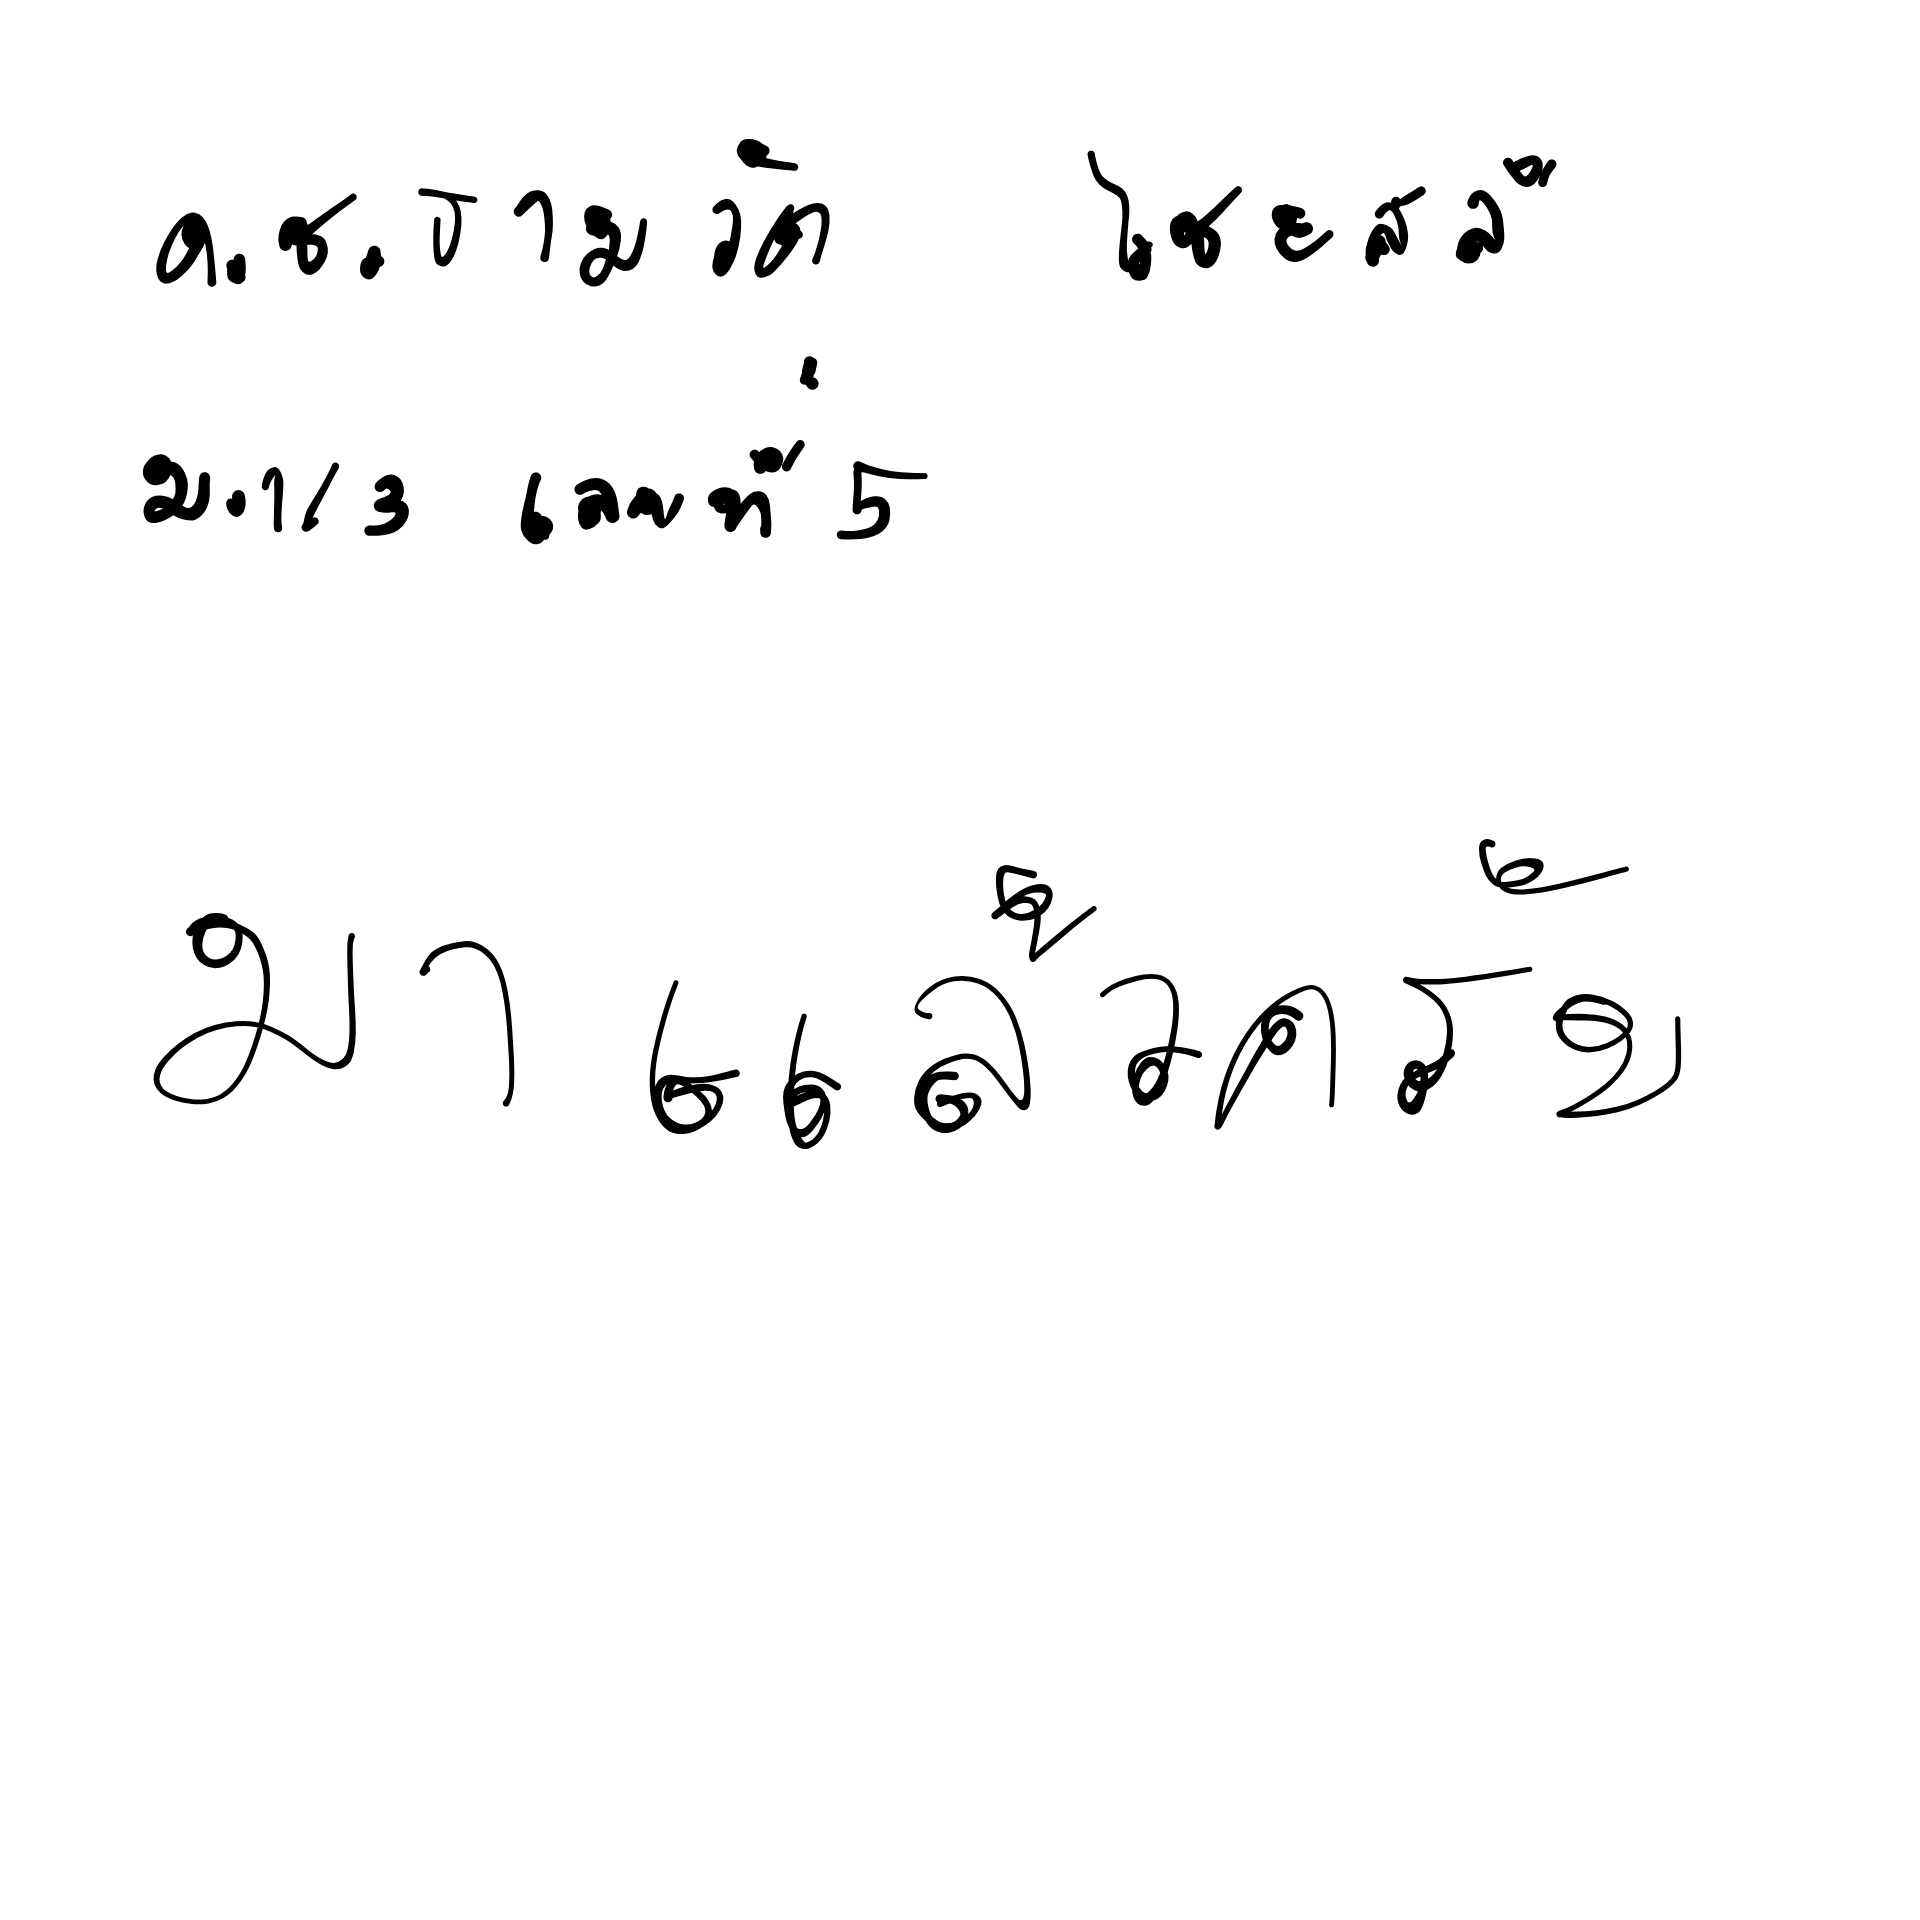 ด.ช.ปามวัด ไชยะสิล
ม.1/3 เลขที่ 5
มาแล้วครับ